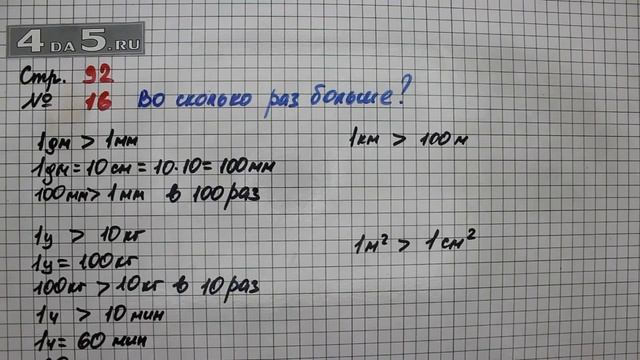 4DA5.RU
Стр. 92
№ 16 Во сколько раз больше?
1дм > 1мм
1дм = 10см = 10·10 = 100мм
100мм > 1мм в 100 раз
1ц > 10кг
1ц = 100кг
100кг > 10кг в 10 раз
1ч > 10мин
1ч = 60мин
1км > 100м
1м² > 1см²